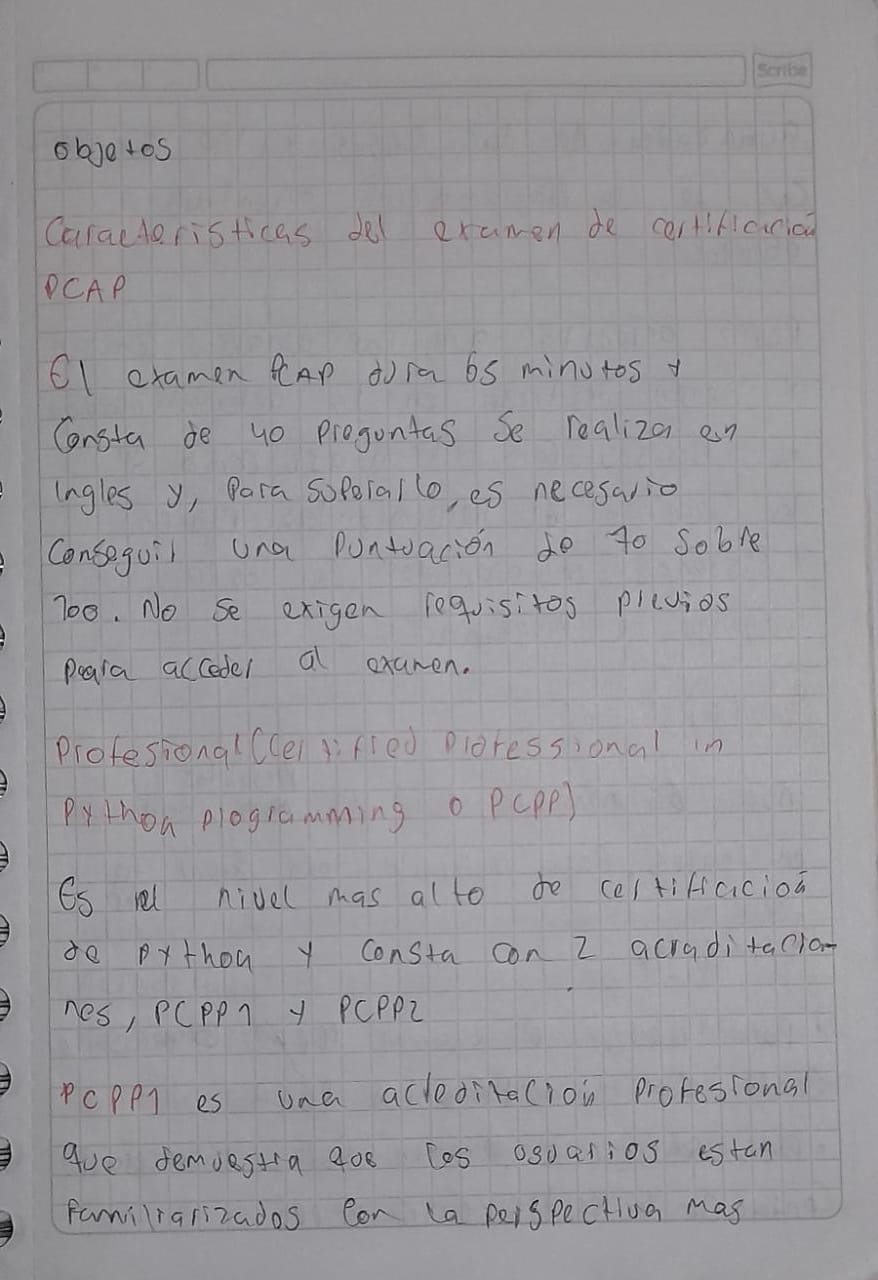 Scribe
objetos
Características del examen de certificación
PCAP
El examen PCAP dura 65 minutos y
Consta de 40 preguntas se realiza en
ingles y, para superarlo, es necesario
conseguir una puntuación de 70 sobre
100. No se exigen requisitos previos
para acceder al examen.
Profesional (Certified Professional in
Python programming o PCPP)
Es el nivel mas alto de certificación
de python y consta con 2 acreditacio-
nes, PCPP1 y PCPP2
PCPP1 es una acreditación profesional
que demuestra que los usuarios estan
familiarizados con la perspectiva mas